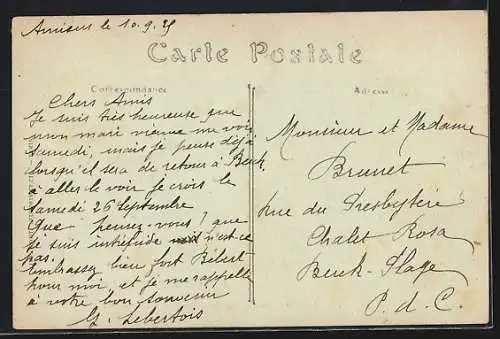 Amiens le 10.9.25
Carte Postale
Correspondance
Adresse
Chers Amis
Je suis très heureuse que
mon mari vienne me voir
Samedi, mais je pense déjà
lorsqu'il sera de retour à Berck,
à aller le voir je crois le
Samedi 26 Septembre
Que pensez-vous! que
je suis intrépide n'est-ce
pas.
Embrassez bien fort Bébert
pour moi, et je me rappelle
à votre bon souvenir
G. Lebertois
Monsieur et Madame
Brunet
Rue du Presbytère
Chalet Rosa
Berck-Plage
P. d. C.